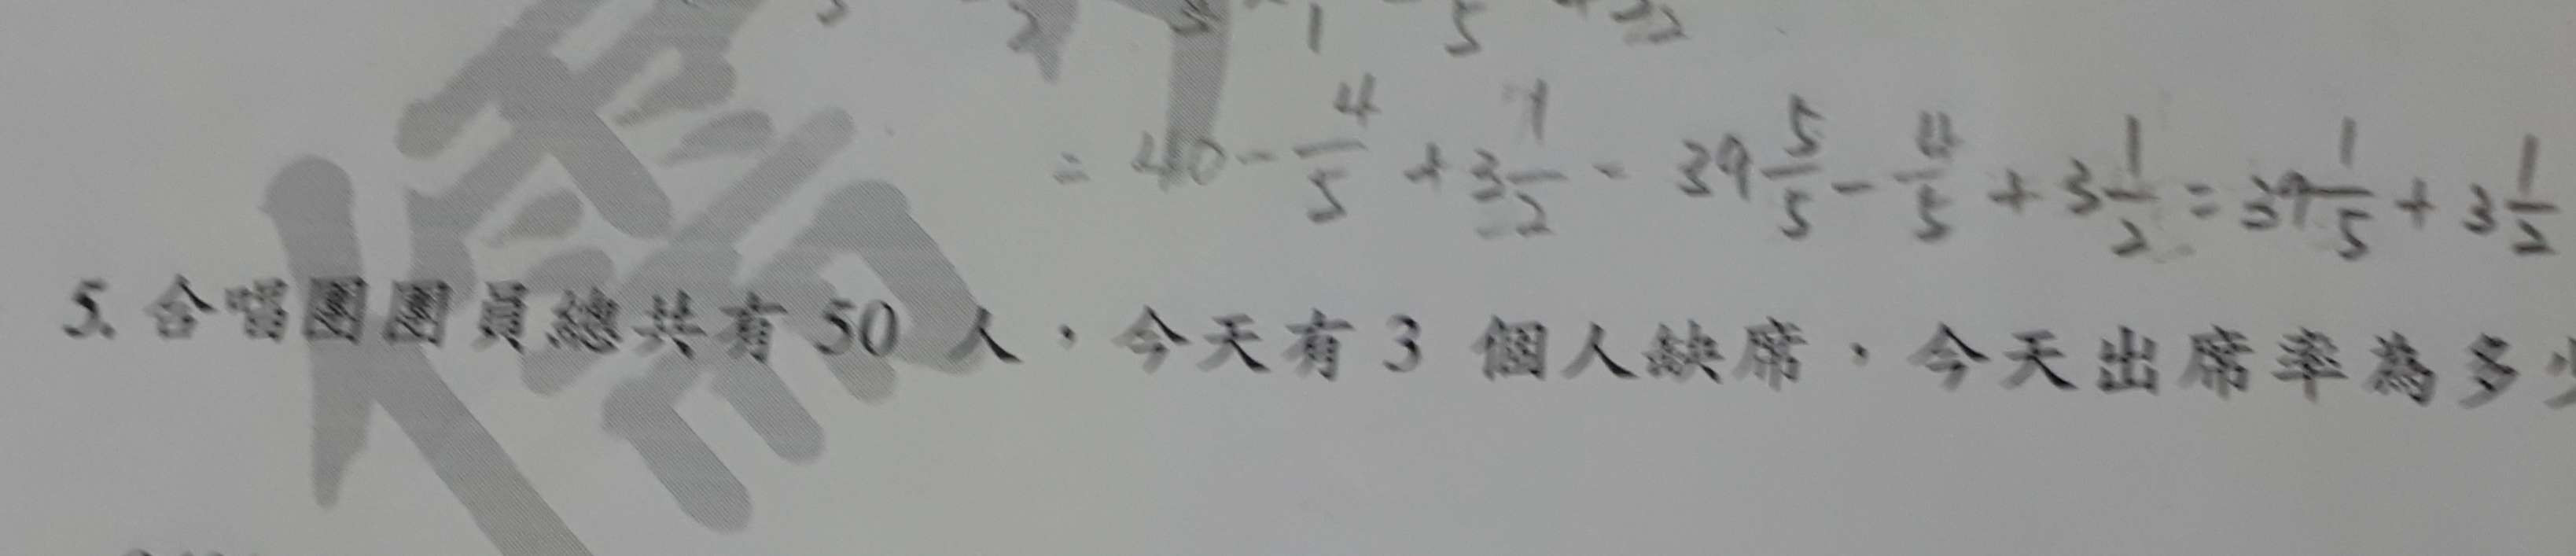 = 40 - 4/5 + 3 1/2 = 39 5/5 - 4/5 + 3 1/2 = 39 1/5 + 3 1/2
5. 合唱團團員總共有 50 人，今天有 3 個人缺席，今天出席率為多